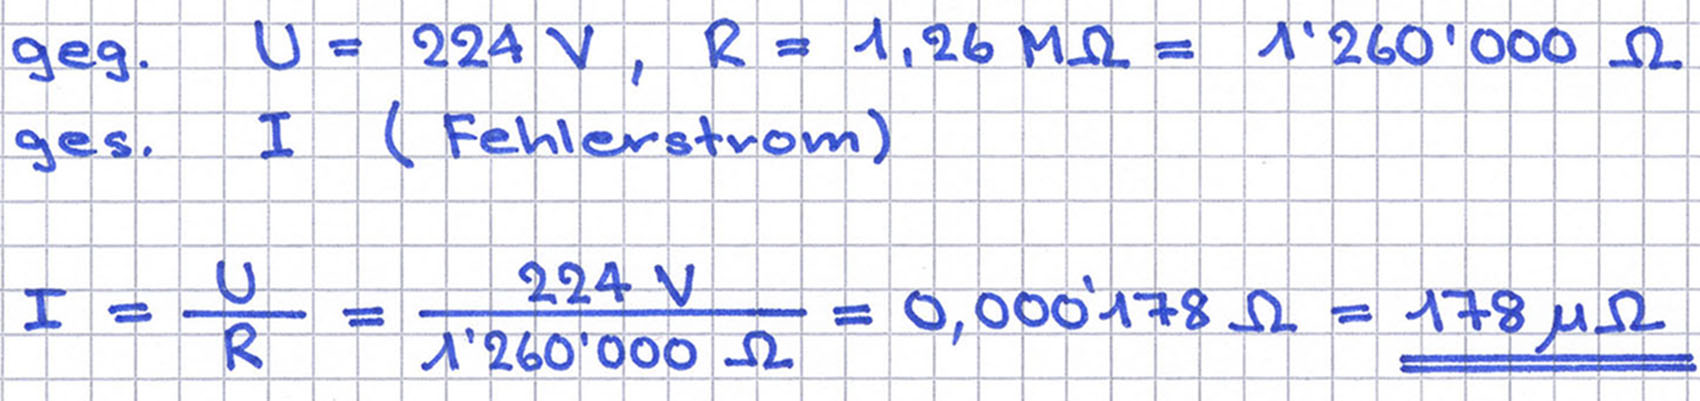 geg. U = 224 V, R = 1,26 MΩ = 1'260'000 Ω
ges. I (Fehlerstrom)
I = U/R = 224 V / 1'260'000 Ω = 0,000'178 Ω = 178 μΩ